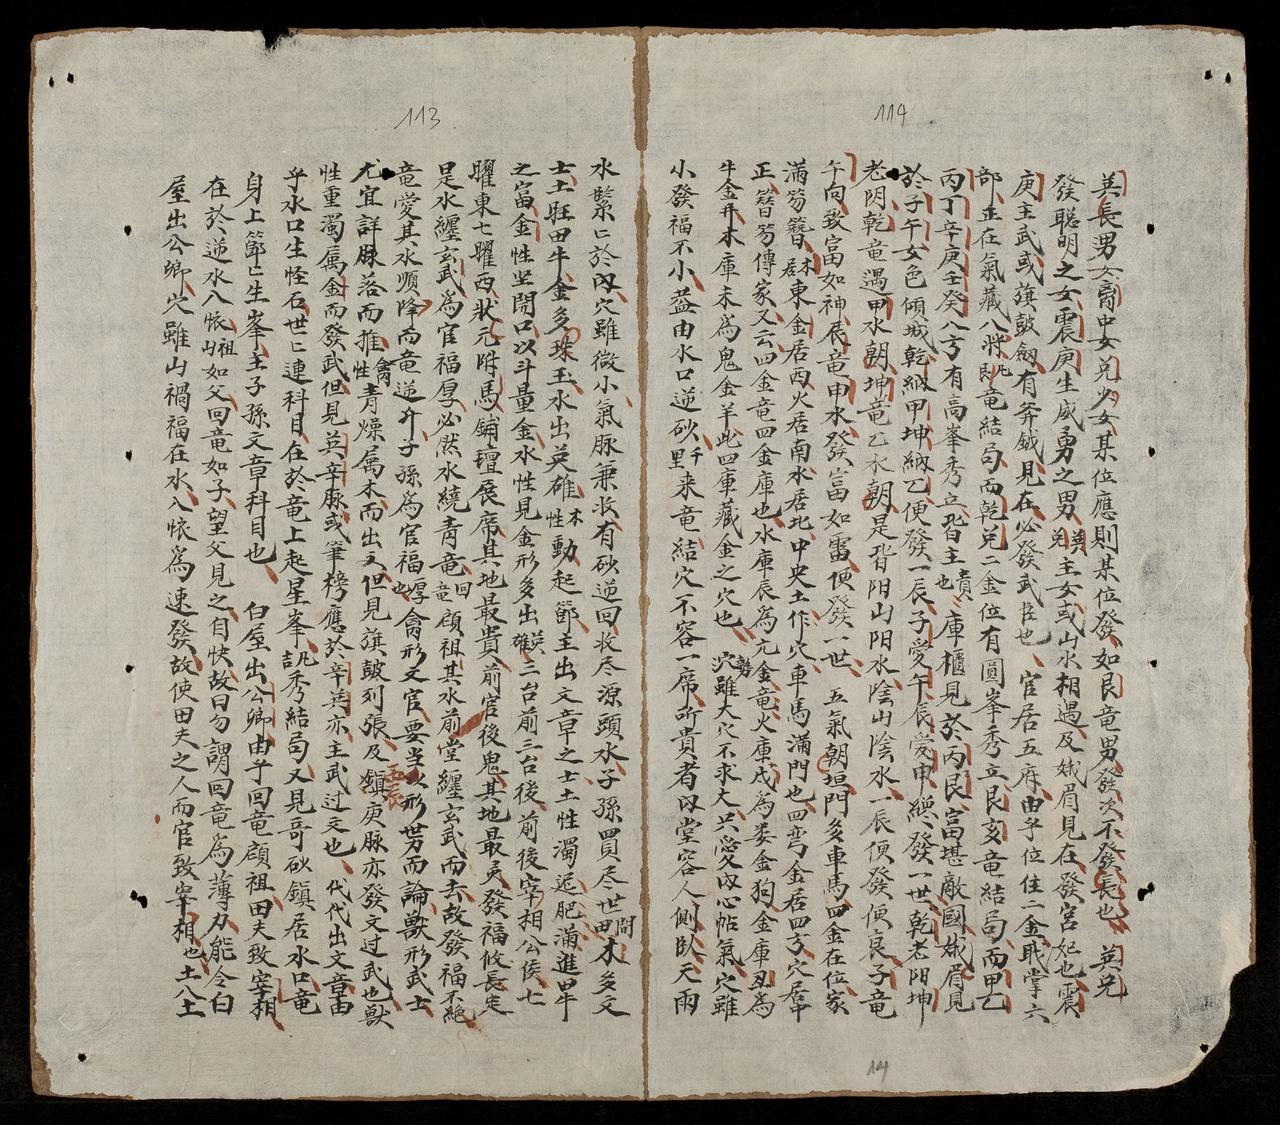 114
巽長男女离中女兌少女某位應則某位發如艮竜男發次不發長也巽兌
發聡明之女震庚生威勇之男巽兌主女或山水相遇及娥眉見在發宮妃也震
庚主武或旗鼓劔有斧鉞見在必發武臣也官居五府由乎位住二金戝掌六
部正在氣藏八將凡即竜結局而乾兌二金位有圓峯秀立艮亥竜結局而甲乙
丙丁辛庚壬癸八方有高峯秀立皆主貴也庫櫃見於丙艮富堪敵國娥眉見
於子午女色傾城乾納甲坤納乙便發一辰子愛午辰愛申總發一世乾老阳坤
老阴乾竜遇甲水朝坤竜乙水朝是皆阳山阳水陰山陰水一辰便發便衰子竜
午向致富如神辰竜申水發富如雷便發一世 五氣朝垣門多車馬四金在位家
滿笏簪木居東金居西火居南水居北中央土作穴車馬滿門也四弯金居四方穴居中
正簪笏傳家又云四金竜四金庫也水庫辰為亢金竜火庫戌為娄金狗金庫丑為
牛金牛木庫未為鬼金羊此四庫藏金之穴也 勢穴雖大穴不求大只愛内心帖氣穴雖
小發福不小益由水口逆砂千里来竜結穴不容一席所貴者内堂容人側臥天雨
14
113
水緊〻於內穴雖微小氣脉兼收有砂逆回收尽源頭水子孫買尽世間田木多文
士土旺田牛金多珠玉水出英雄木性動起節主出文章之士土性濁泥肥滿進畢牛
之富金性坐開口以斗量金水性見金形多出英雄三台前三台後前後宰相公侯七
曜東七曜西狀元附馬鋪壇展席其地最貴前官後鬼其地最灵發福攸長定
是水纏玄武為官福厚必然水繞青竜回竜顧祖其水前堂纏玄武而去故發福不絕
竜愛其水順降而竜逆升子孫為官福厚也禽形文官要当以形势而論獸形武士
尤宜詳脉落而推禽性青燥属木而出文但見旗鼓列張及鎮庚脉亦發文过武也獸
性重濁属金而發武但見巽辛脉或筆榜應於辛巽亦主武过文也 代代出文章由
乎水口生怪石世〻連科目在於竜上起星峯凡吉秀結局又見奇砂鎮居水口竜
身上節〻生峯主子孫文章科目也 白屋出公卿由乎回竜顧祖田夫致宰相
在於逆水八懷祖山如父回竜如子望父見之自快故曰勿謂回竜為薄力能令白
屋出公卿穴雖山禍福在水入懷為速發故使田夫之人而官致宰相也土八土